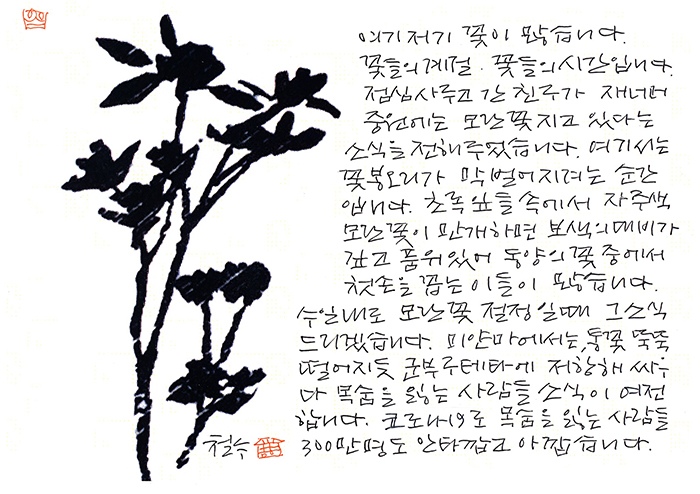 여기저기 꽃이 많습니다.
꽃들의 계절. 꽃들의 시간입니다.
점심 사주고 간 친구가 재너머
중원에는 모란꽃 지고 있다는
소식을 전해주었습니다. 여기서는
꽃봉오리가 막 벌어지려는 순간
입니다. 초록 잎들 속에서 자주색
모란꽃이 만개하면 보색의 대비가
깊고 품위있어 동양의 꽃 중에서
첫손을 꼽는 이들이 많습니다.
수일내로 모란꽃 절정일때 그 소식
드리겠습니다. 미얀마에서는, 통꽃 뚝뚝
떨어지듯 군부쿠테타에 저항해 싸우
다 목숨을 잃는 사람들 소식이 여전
합니다. 코로나19로 목숨을 잃는 사람들
300만명도 안타깝고 아깝습니다.
철수